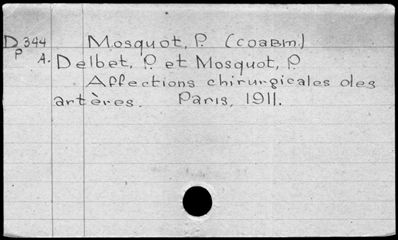 D 344 Mosquot, P. (соавт.)
P A. Delbet, P. et Mosquot, P.
Affections chirurgicales des
artères. Paris, 1911.